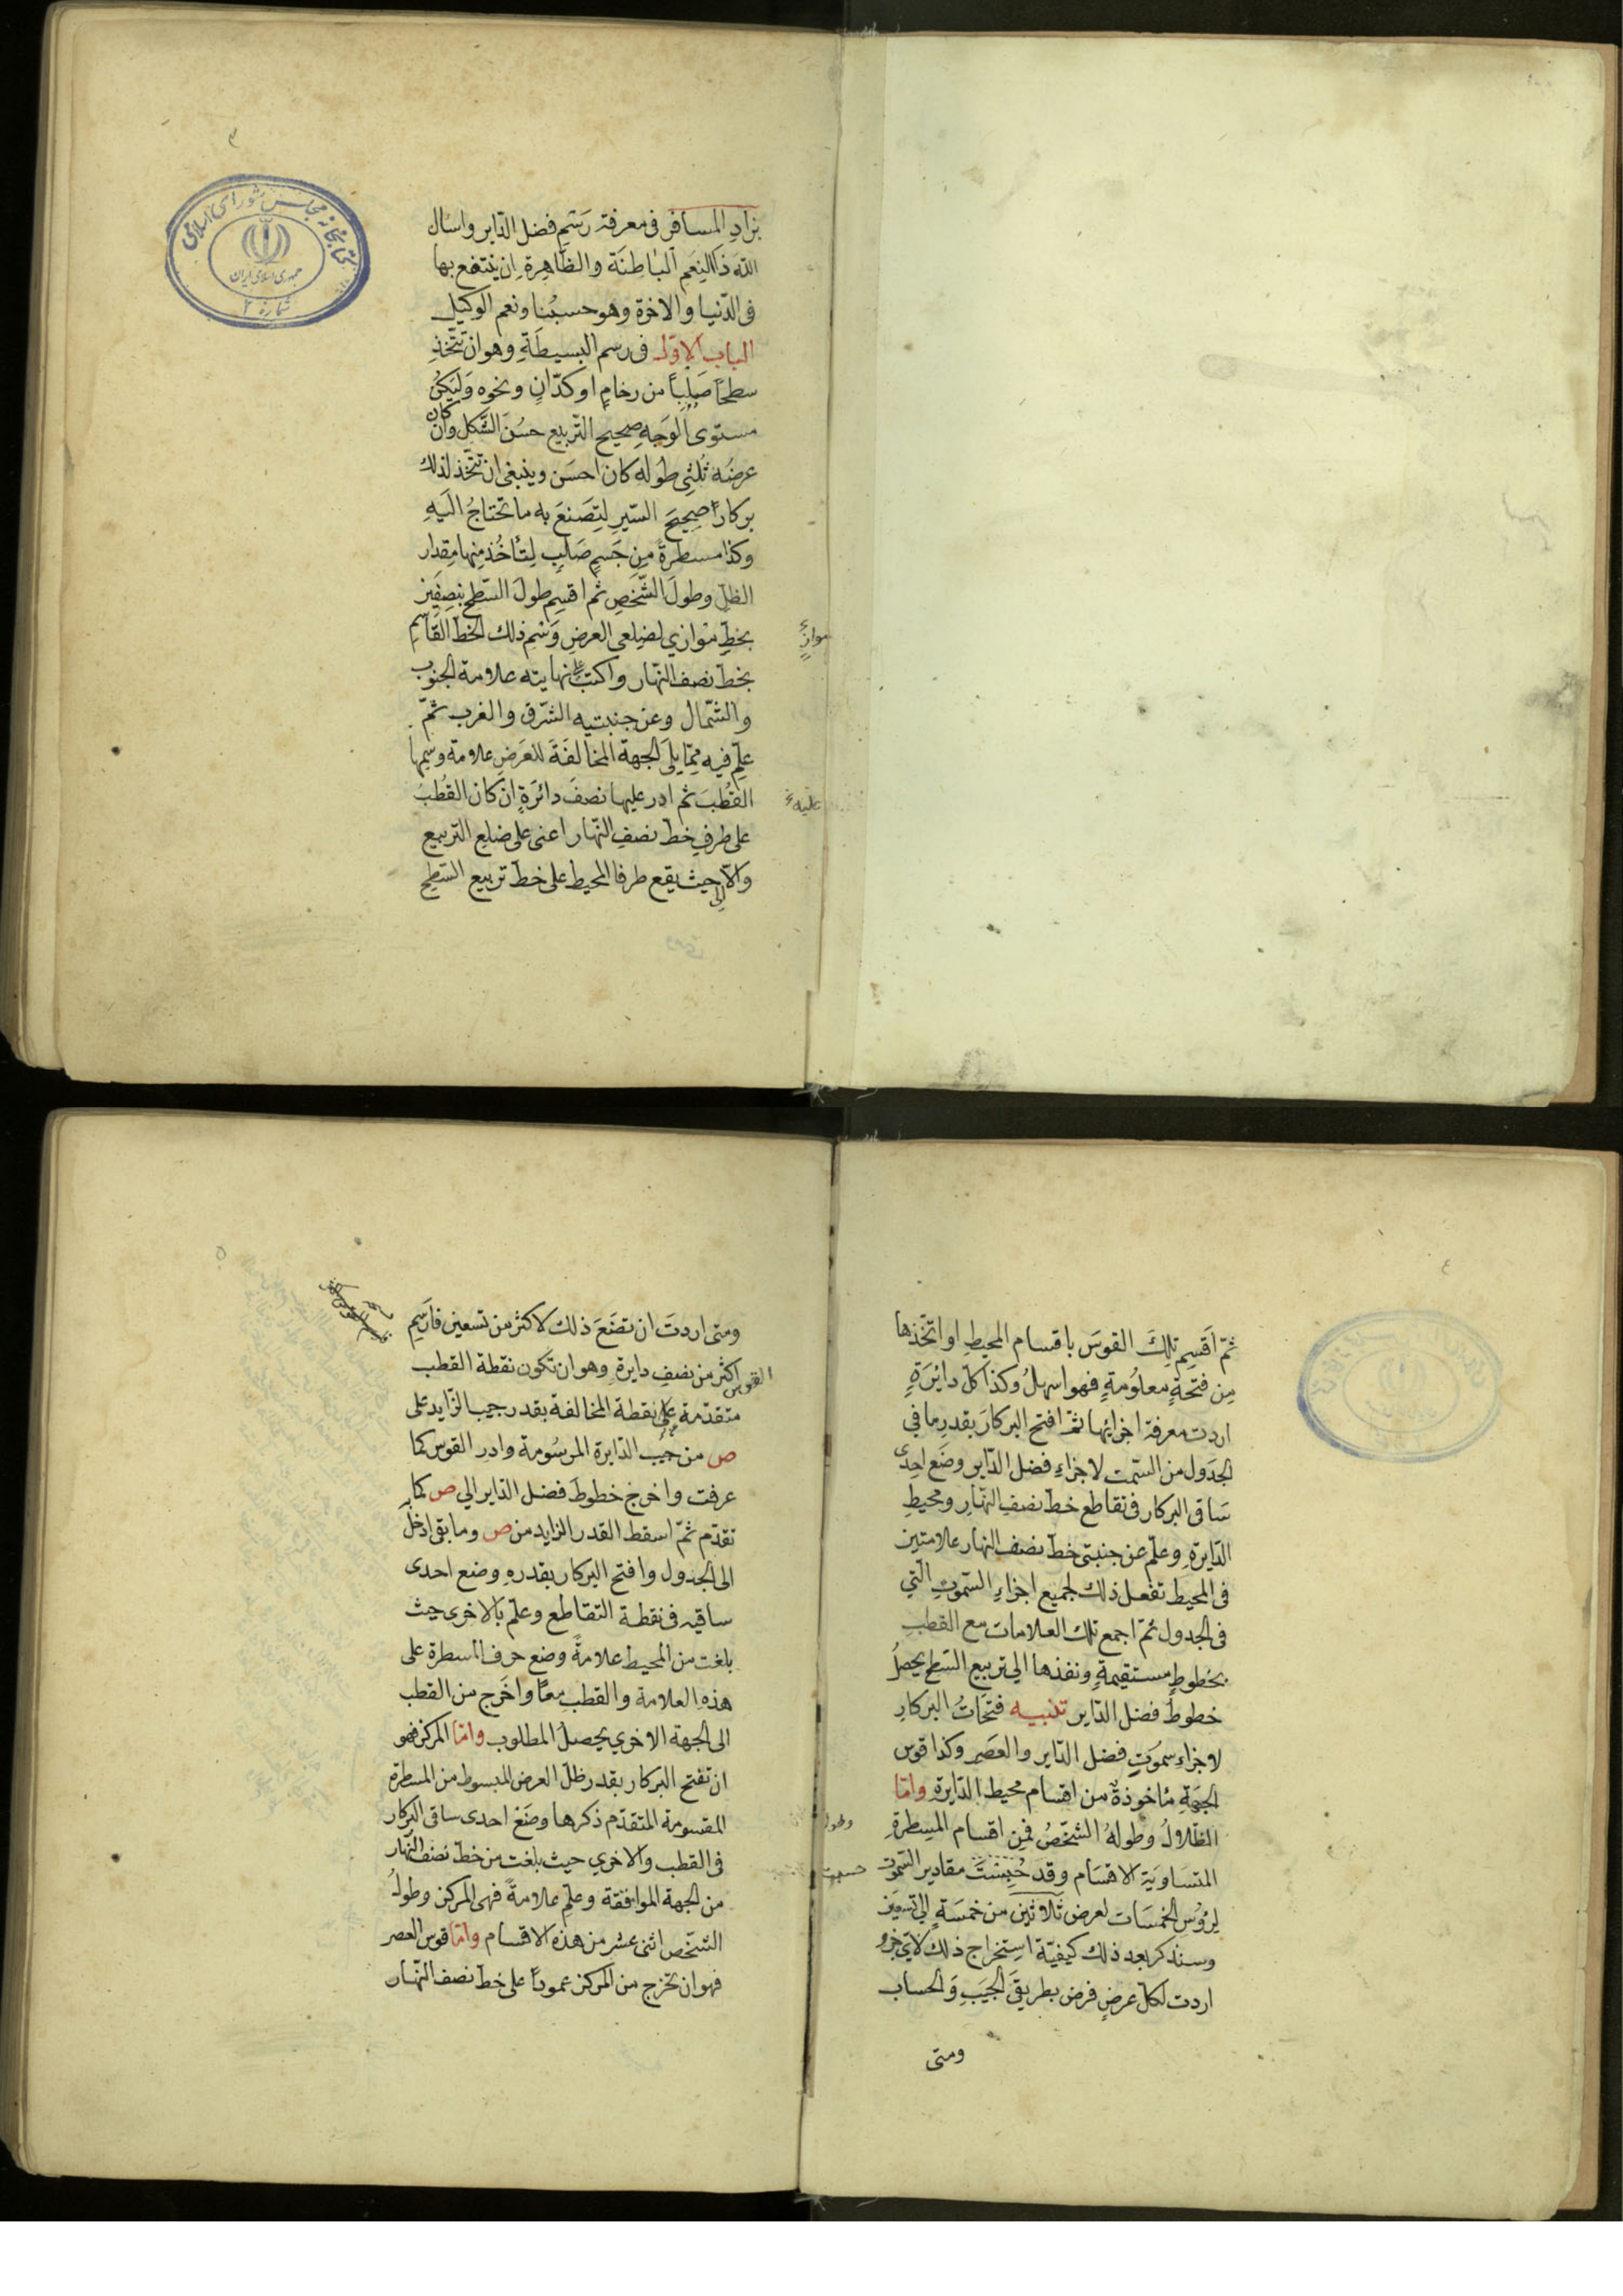 ٣
كتابخانه مجلس شوراى اسلامى
جمهورى اسلامى ايران
شماره ٢
بزاد المسافر فى معرفة رَسْمِ فضل الدّاير واسْال
اللّهَ ذا النِعَم الباطِنَة والظاهِرةِ ان ينتفع بها
فى الدّنيا والاخرة وهو حسبُنا ونعم الوكيل
الباب الاوّل فى رسم البسيطَةِ وهو ان تتّخذِ
سطحًا صَلِباً من رخامٍ او كدّانٍ ونحوه وَليَكنُ
مستوى الوَجهِ صحيح التّربيع حسُنَ الشَّكل وان كان
عرضُه ثُلثى طوله كان احسَن وينبغى ان تتّخذ لذلك
بركاراً صحيحَ السّيرِ لتِصَنعَ به ما تحتاجُ الَيهِ
وكذا مسطرةً مِن جَسمٍ صَلبٍ لِتأخُذ مِنها مِقدار
الظلِ وطولَ الشّخصِ ثم اقسِم طولَ السّطح بنِصفَين
بخطٍّ متوازي لضلعى العرضِ وَسَمِ ذلك الخطّ القَاسِم
موازٍ
بخطّ نصف النهار واكتبْ على نهايته علامة الجنوب
والشّمال وعن جنبتيه الشّرق والغرب ثمّ
علّم فيه ممّا يلىَ الجهة المخالفَةَ للعَرَضِ علامة وسمِّها
القُطبَ ثم ادِر عليها نصفَ دائرَةٍ ان كان القُطبُ
عليه
على طرفِ خطّ نصفِ النّهار اعنى على ضلعِ التربيع
والاّ الى حيث يقع طرفا المحيط على خطّ تربيع السّطح
٤
ثمّ اَقسِم تلِكَ القوسَ باقسام المحيطِ او اتّخذها
مِن فتحةٍ معلوُمةٍ فهو اسهلُ وكذا كلّ دائرَةٍ
اردت معرفة اجزائها ثمّ افتح البركارَ بقدرِ ما في
الجدَول من السّمت لاجزاءِ فضل الدّاير وضَع احِدَى
سَاقى البركار فى تقاطع خطّ نصفِ النّهارِ ومحيطِ
الدّايرةِ وعلّم عن جنبتى خطّ نصف النهار علامتين
فى المحيط تفعل ذلك لجميع اجزاءِ السّموُتِ الّتي
فى الجدول ثمّ اجمع تلك العلامات مع القطبِ
بخطوطٍ مستقيمةٍ ونفذها الي تربيع السّطح يحصلُ
خطوطُ فضل الدّاير تنبيه فتحَاتُ البركارِ
لاجزاءِ سموَتِ فضل الدّاير والعصَر وكذا قوس
الجهَةِ مأخوذةٌ من اقسام محيط الدّايرةِ وامّا
الظّلالُ وطولهُ الشخّصُ فمِن اقسام المِسطرةِ
وطول
المتسَاوَيَة الاقسَام وقد حُسِبَتَ مقادير السّموت
حسبت
لِرؤُسِ الخمسَات لعرض ثَلاَثَين من خمسَةٍ الى تسعَين
وسنذكر بعد ذلك كيفيّة استِخراج ذلك لاىّ جزو
اردت لكلّ عرضٍ فرض بطريقَ الجَيَبِ وَالحساب
ومتى
٥
ومتى اردتَ ان تصَنَعَ ذلك لاكثر من تسعين فارَسِم
القوس اكثر من نصفِ دايرةِ وهو ان تكون نقطة القطب
متقدّمة على نقطة المخالفة بقدر جيب الزّايد على
ص من جيب الدّايرة المرسُومة وادِر القوس كما
عرفت واخرج خطوطَ فضل الدّاير الي ص كما
تقدّم ثمّ اسقط القدر الزايد من ص وما بقى ادخل
الى الجدول وافتح البركار بقدرهِ وضع احدى
ساقيه فى نقطة التقاطع وعلّم بالاخرى حيث
بلغت من المحيط علامةً وضع حرف المسطرة على
هذِه العلامة والقطبِ معًا واخَرج من القطب
الى الجهة الاخري يحصلُ المطلوب وامّا المركز فهو
ان تفتح البركار بقدر ظلّ العرض المبسوط من المسطرة
المقسومة المتقدّم ذكرها وضَعْ احدى ساقى البركار
فى القطب والاخري حيث بلغت من خطّ نصف النّهار
من الجهة الموافقة وعلّم علامةً فهى المركز وطولُ
الشّخص اثنى عشر من هذه الاقسام وامّا قوس العصر
فهو ان تخرج من المركز عموداً على خطّ نصف النّهار